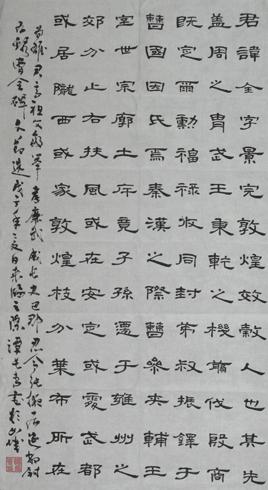 君諱全字景完敦煌效穀人也其先
蓋周之胄武王秉乾之機翦伐殷商
既定爾勳福祿攸同封弟叔振鐸于
曹國因氏焉秦漢之際曹參夾輔王
室世宗廓土斥竟子孫遷于雍州之
郊分止右扶風或在安定或處武都
或居隴西或家敦煌枝分葉布所在
為雄君高祖父敏舉孝廉武威長史巴郡朐忍令張掖居延都尉
曹全碑文節選戊子年夏日書於